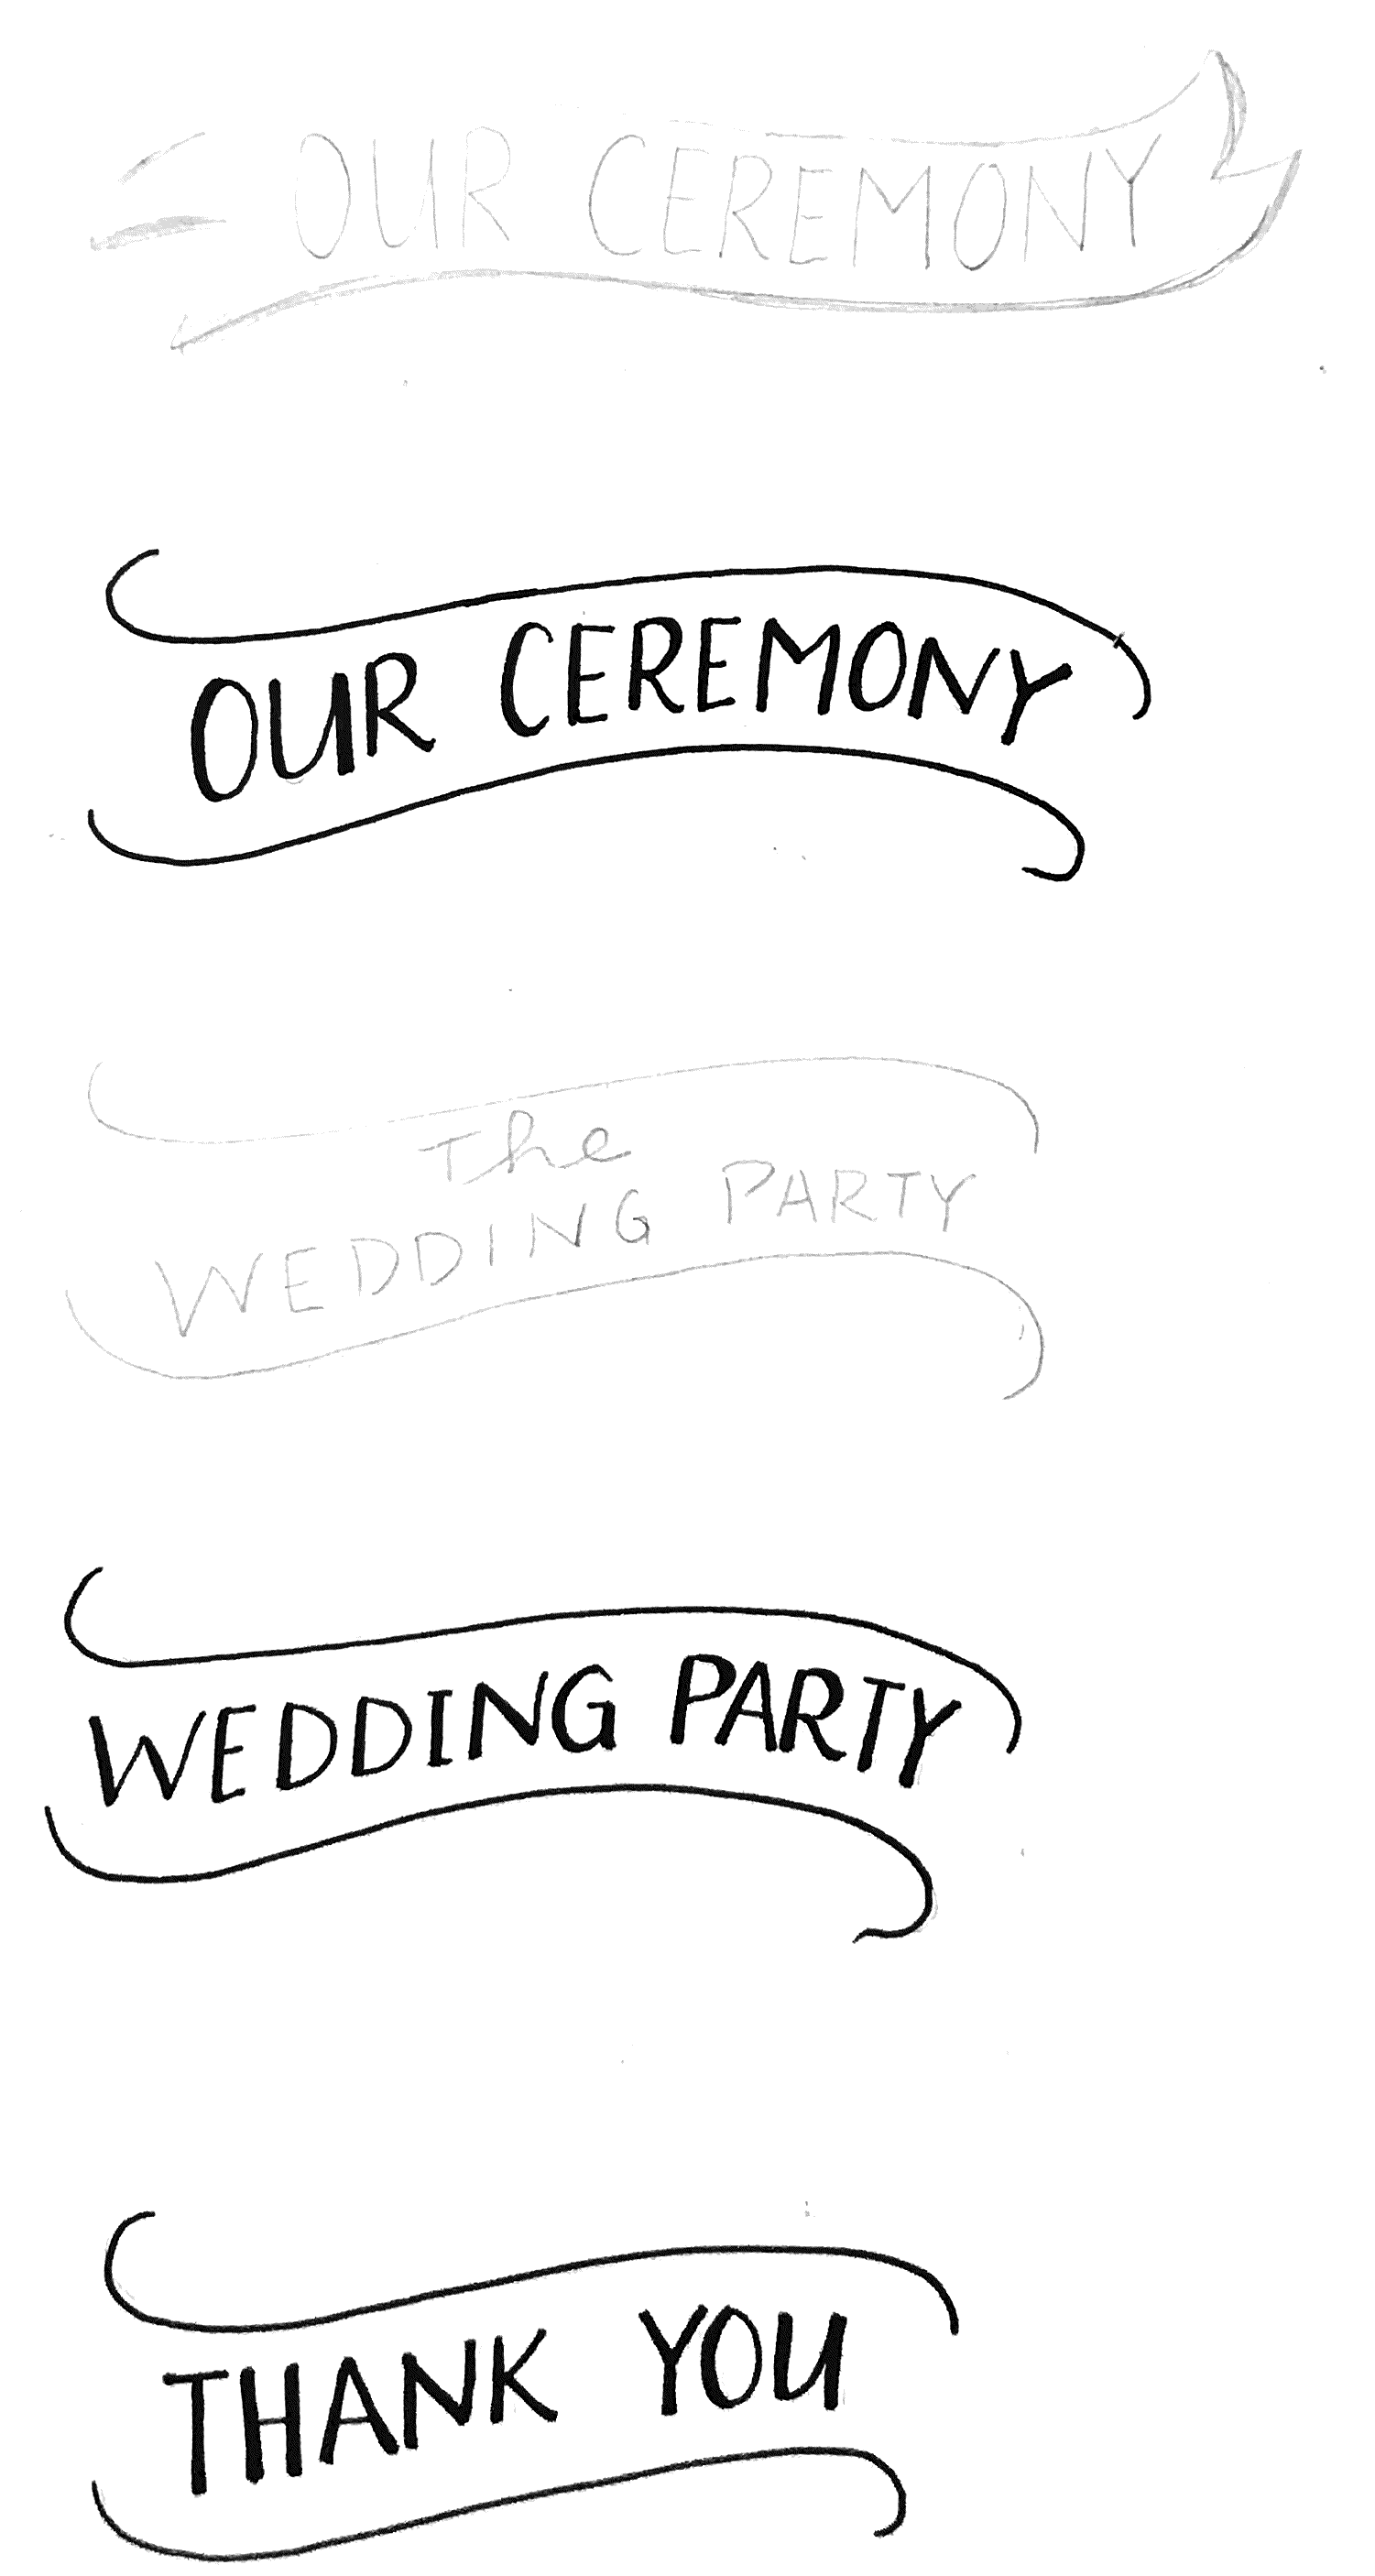 OUR CEREMONY
OUR CEREMONY
The
WEDDING PARTY
WEDDING PARTY
THANK YOU